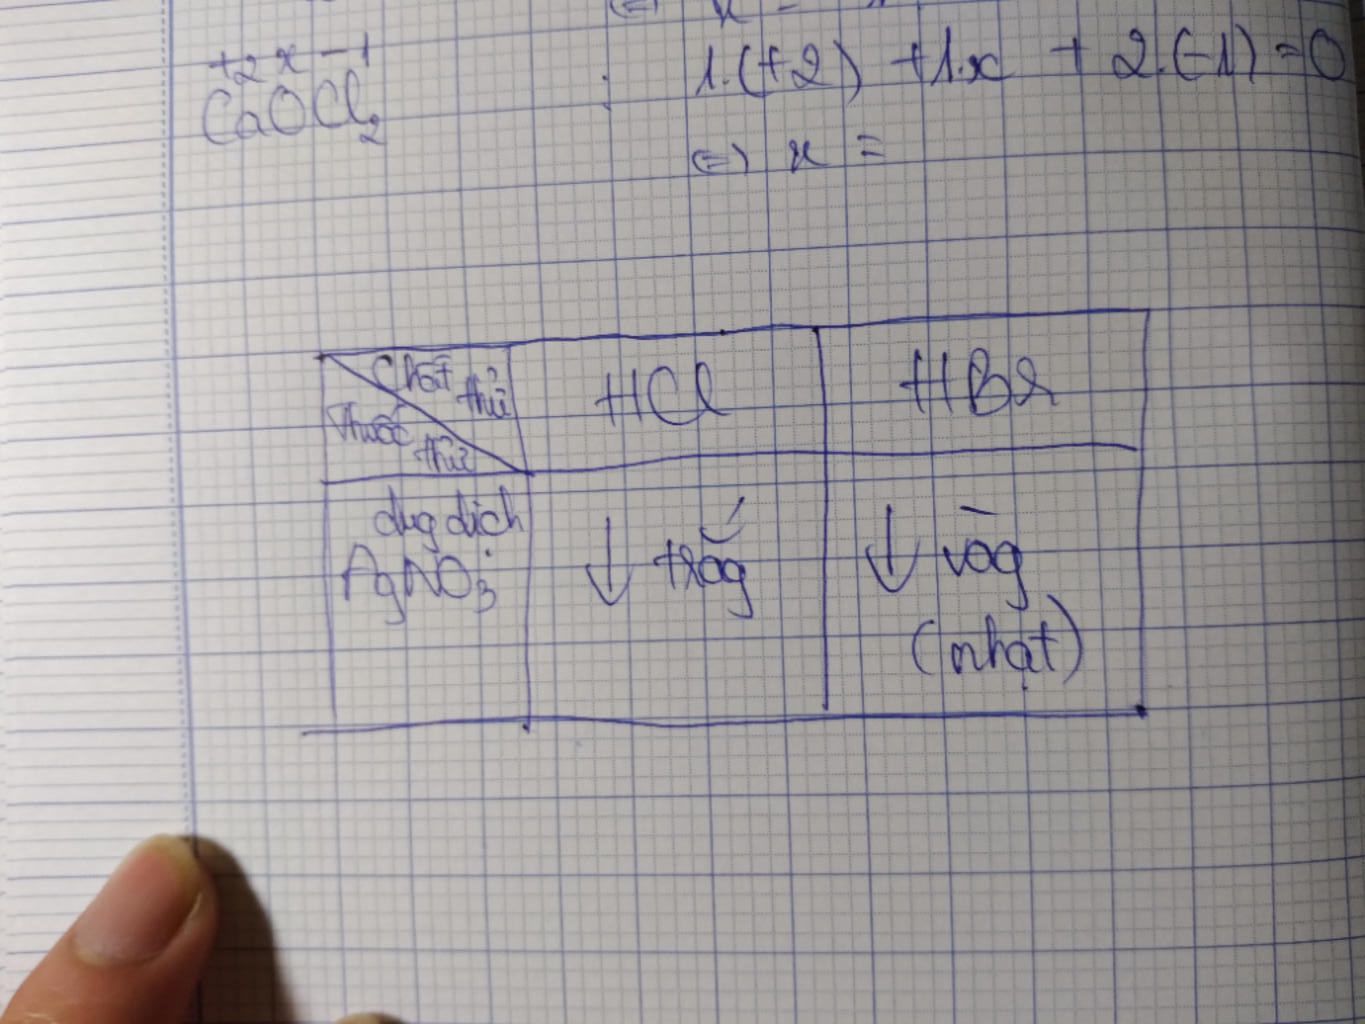 +2 x -1
CaOCl₂ : 1.(+2) + 1.x + 2.(-1) = 0
⇔ x =
Chất thử
Thuốc thử
HCl
HBr
dug dịch
AgNO₃
↓ trắg
↓ vàg
(nhạt)